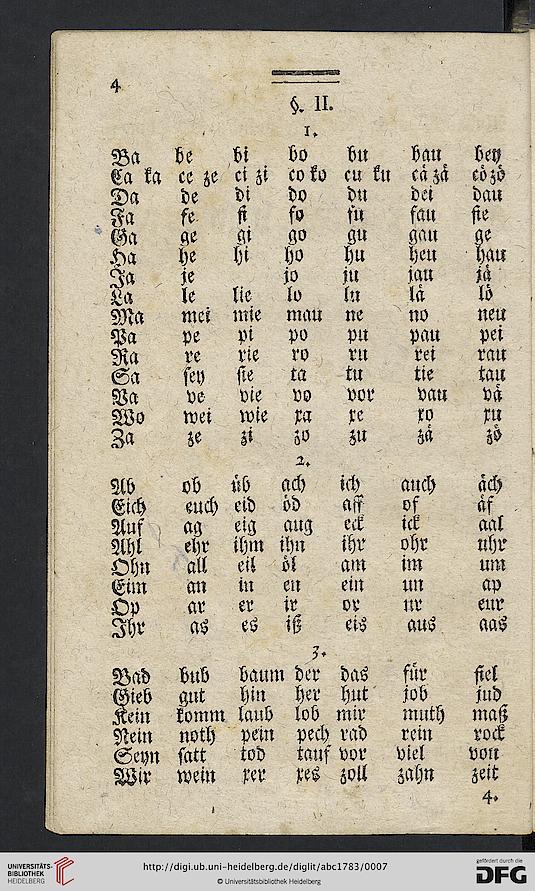 4
§. II.
1.
Ba be bi bo bu bau bey
Ca ka ce ze ci zi co ko cu ku cä zä cö zö
Da de di do du dei dau
Fa fe fi fo fu fau fie
Ga ge gi go gu gau ge
Ha he hi ho hu heu hau
Ja je jo ju jau jä
La le lie lo lu lä lö
Ma mei mie mau ne no neu
Pa pe pi po pu pau pei
Ra re rie ro ru rei rau
Sa ſey ſie ta tu tie tau
Va ve vie vo vor vau vä
Wo wei wie xa xe xo xu
Za ze zi zo zu zä zö
2.
Ab ob üb ach ich auch äch
Eich euch eid öd aff of äf
Auf ag eig aug eck ick aal
Ahl ehr ihm ihn ihr ohr uhr
Ohn all eil öl am im um
Eim an in en ein un ap
Op ar er ir or ur eur
Ihr as es iß eis aus aas
3.
Bad bub baum der das für fiel
Gieb gut hin her hut job jud
Kein komm laub lob mir muth maß
Nein noth pein pech rad rein rock
Seyn ſatt tod tauf vor viel von
Wir wein xer xes zoll zahn zeit
4.
UNIVERSITÄTS-
BIBLIOTHEK
HEIDELBERG
http://digi.ub.uni-heidelberg.de/diglit/abc1783/0007
© Universitätsbibliothek Heidelberg
gefördert durch die
DFG